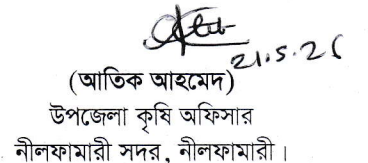 21.5.26
(আতিক আহমেদ)
উপজেলা কৃষি অফিসার
নীলফামারী সদর, নীলফামারী।